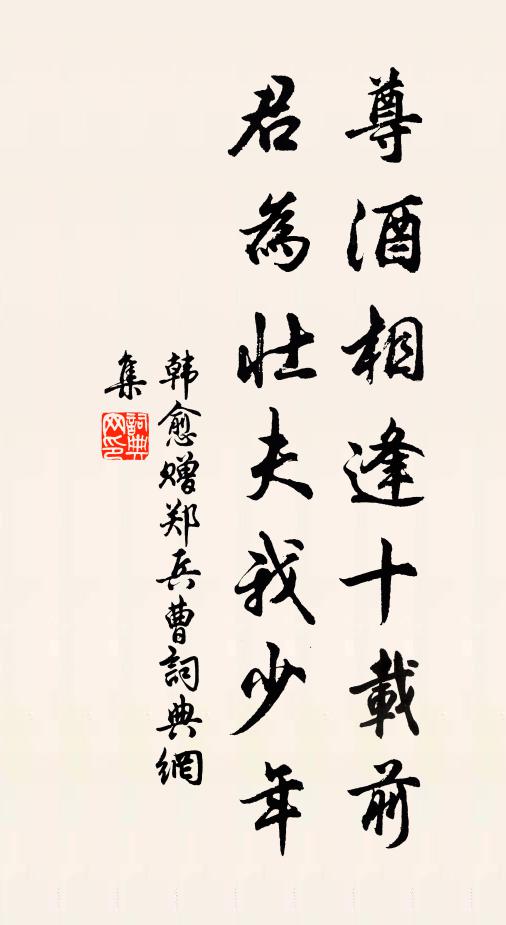 尊酒相逢十載前
君為壯夫我少年
韩愈赠郑兵曹詞典網
集
詞典网印